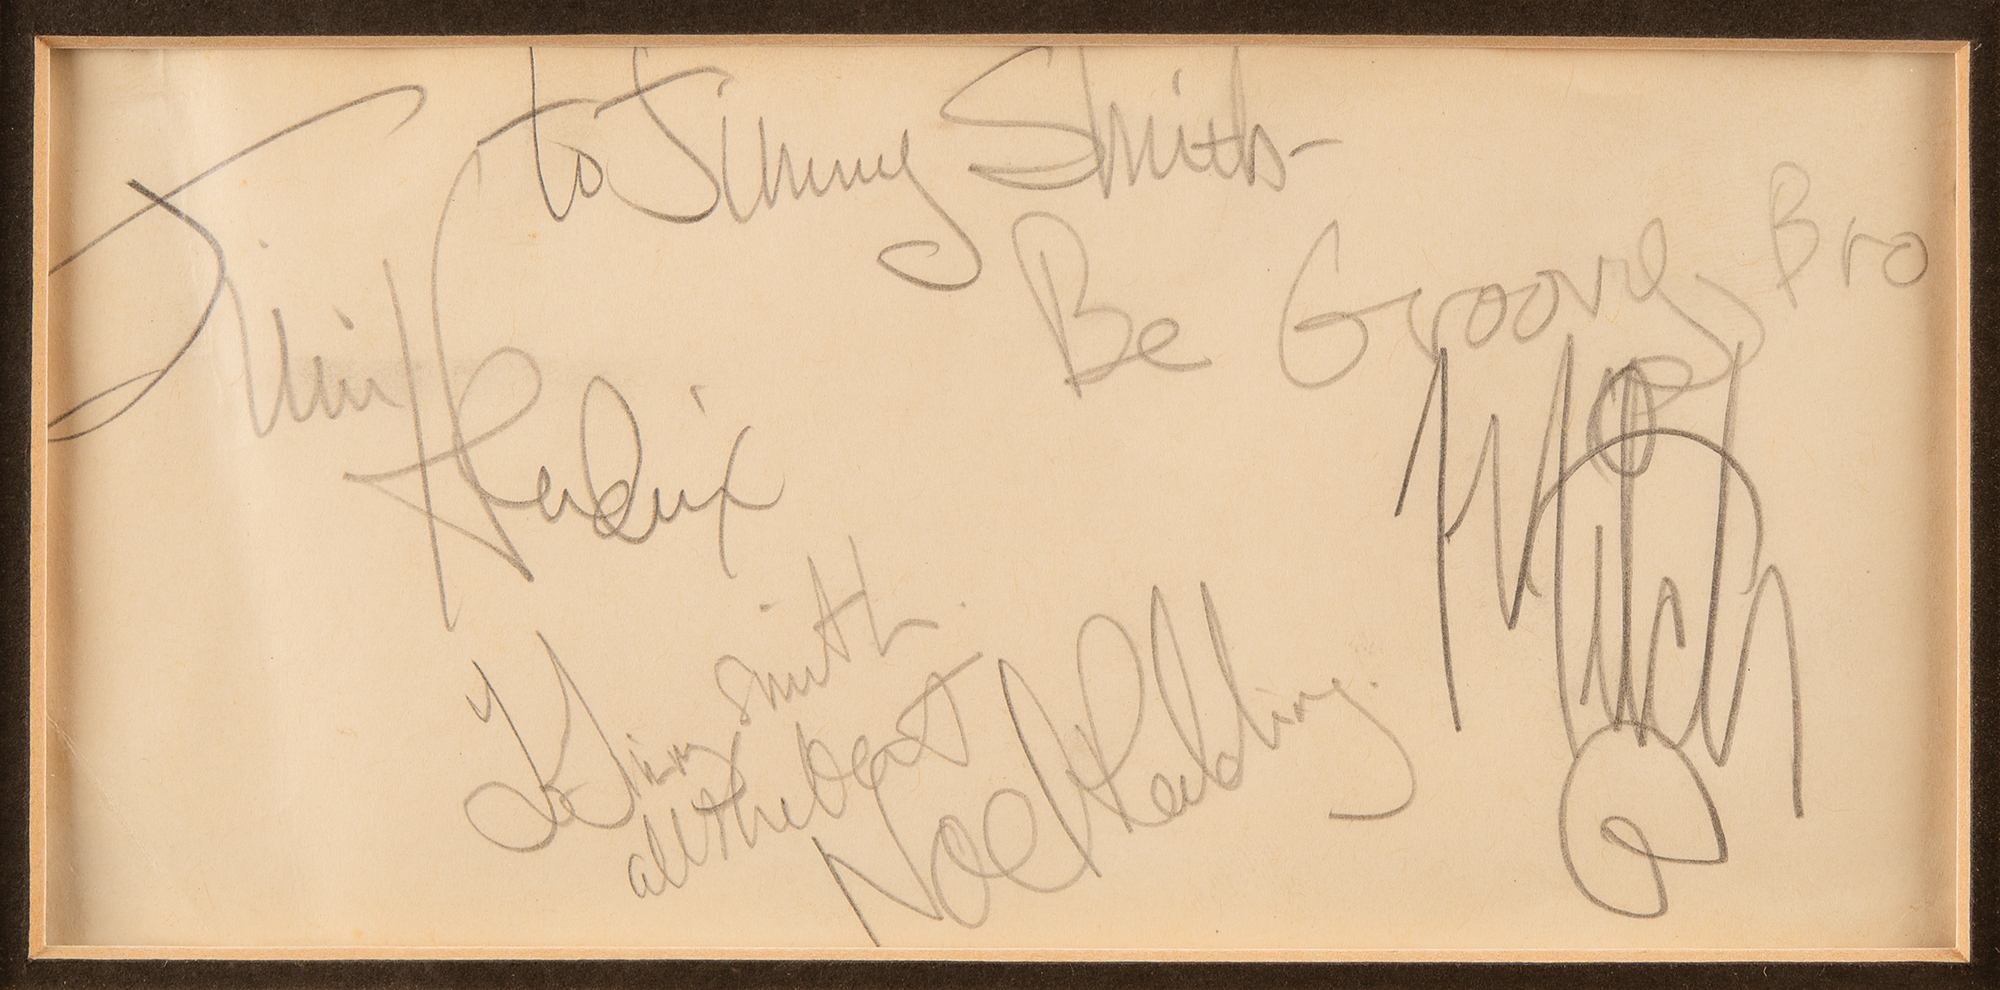 to Jimmy Smith-
Be Groovy, Bro
Jimi
Hendrix
Jimmy Smith.
all the best
Noel Redding.
Mitch